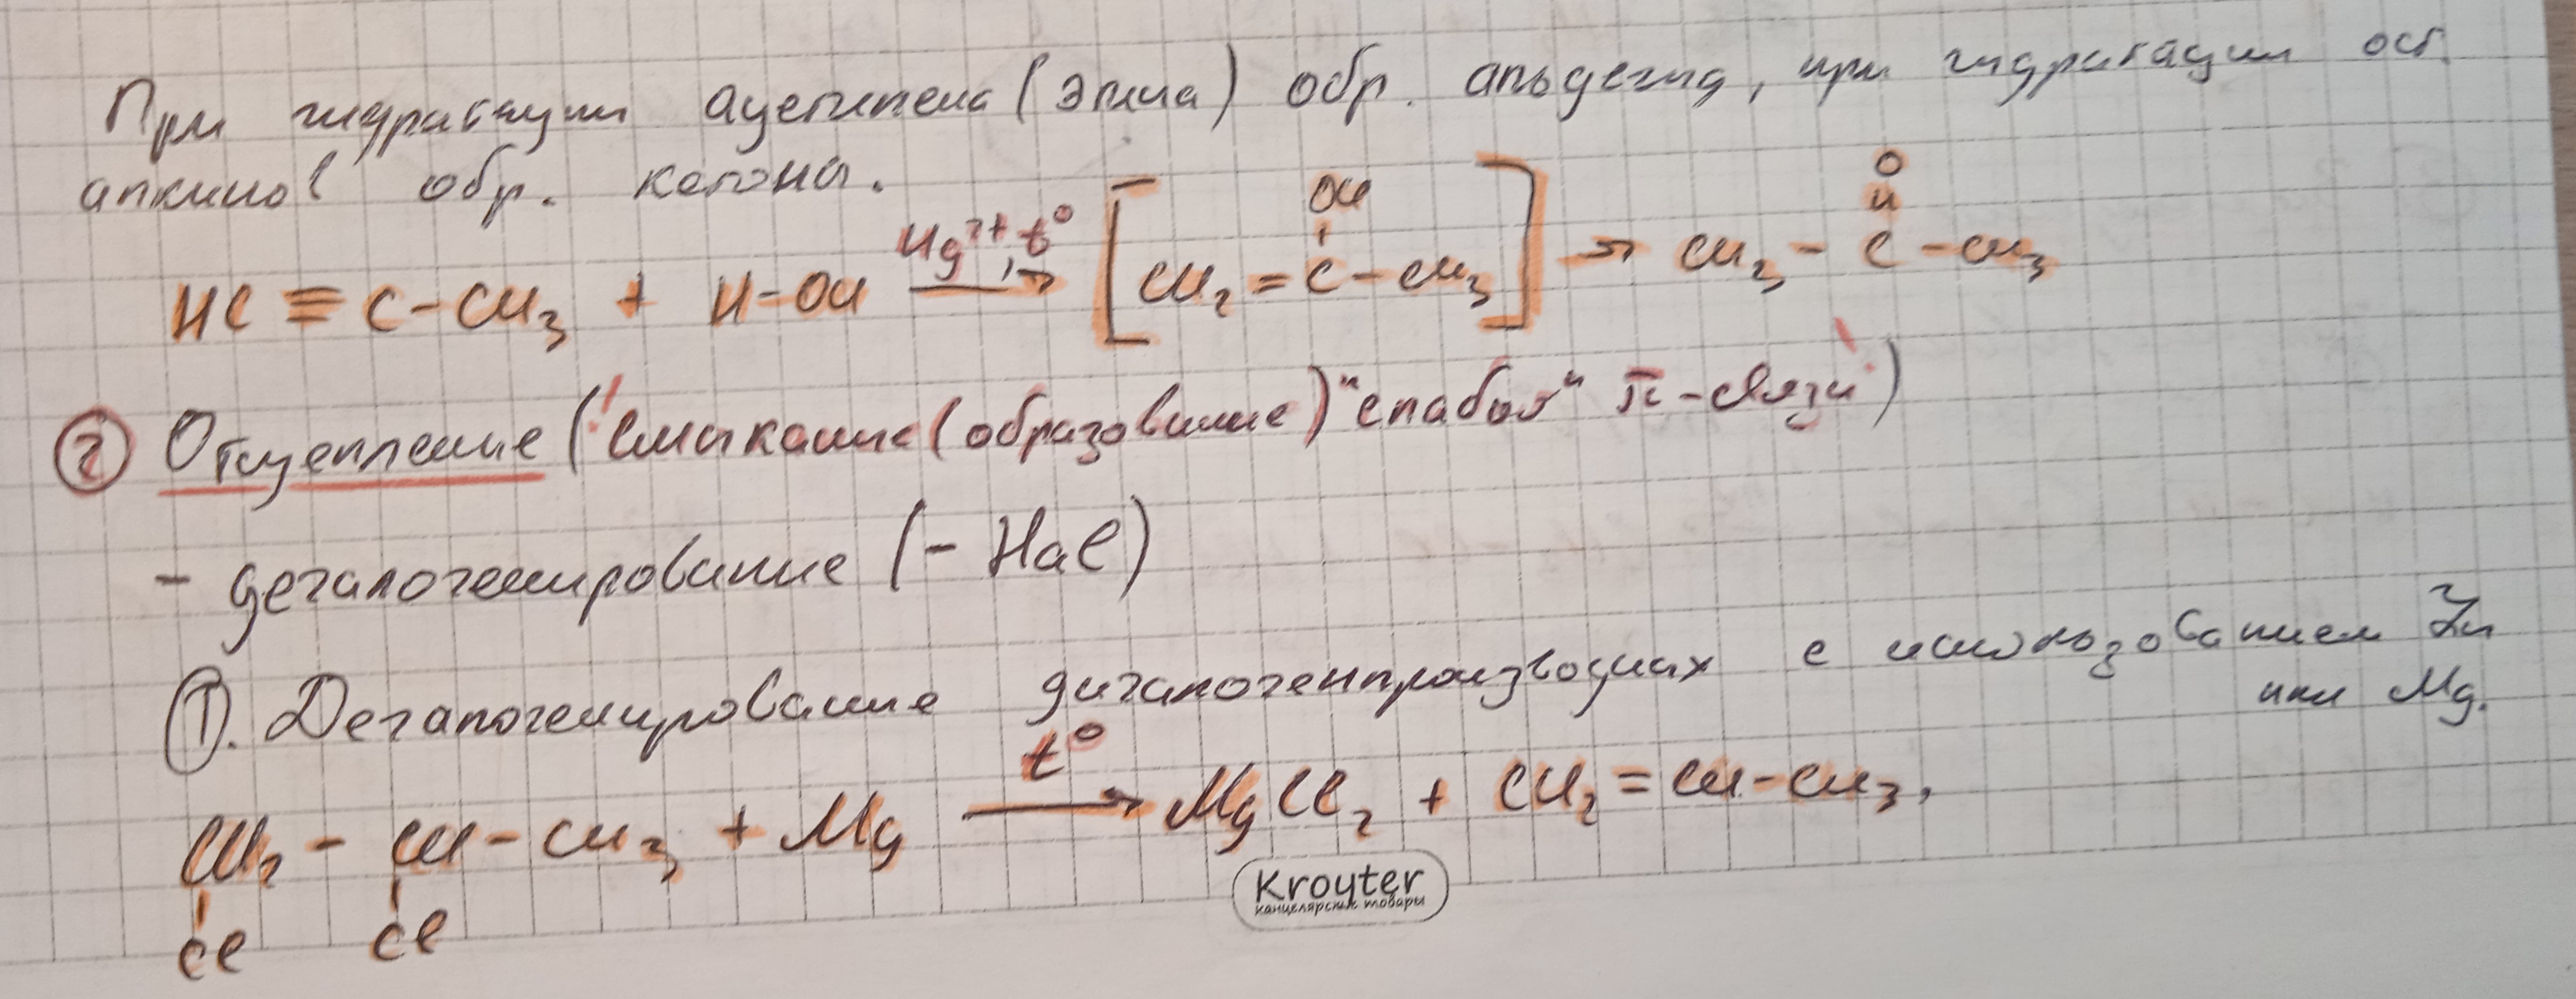 При гидратации ацетилена (этина) обр. альдегид, при гидратации ост.
алкинов обр. кетоны.
HC ≡ C - CH₃ + H-OH Hg²⁺, t° → [CH₂ = C(OH) - CH₃] → CH₃ - C(=O) - CH₃
② Отщепление (! Смыкание (образование) "слабой" π-связи!)
- дегалогенирование (- Hal)
①. Дегалогенирование дигалогенпроизводных с использованием Zn
или Mg.
CH₂ - CH - CH₃ + Mg t° → MgCl₂ + CH₂ = CH - CH₃.
Cl Cl
Kroyter
канцелярские товары